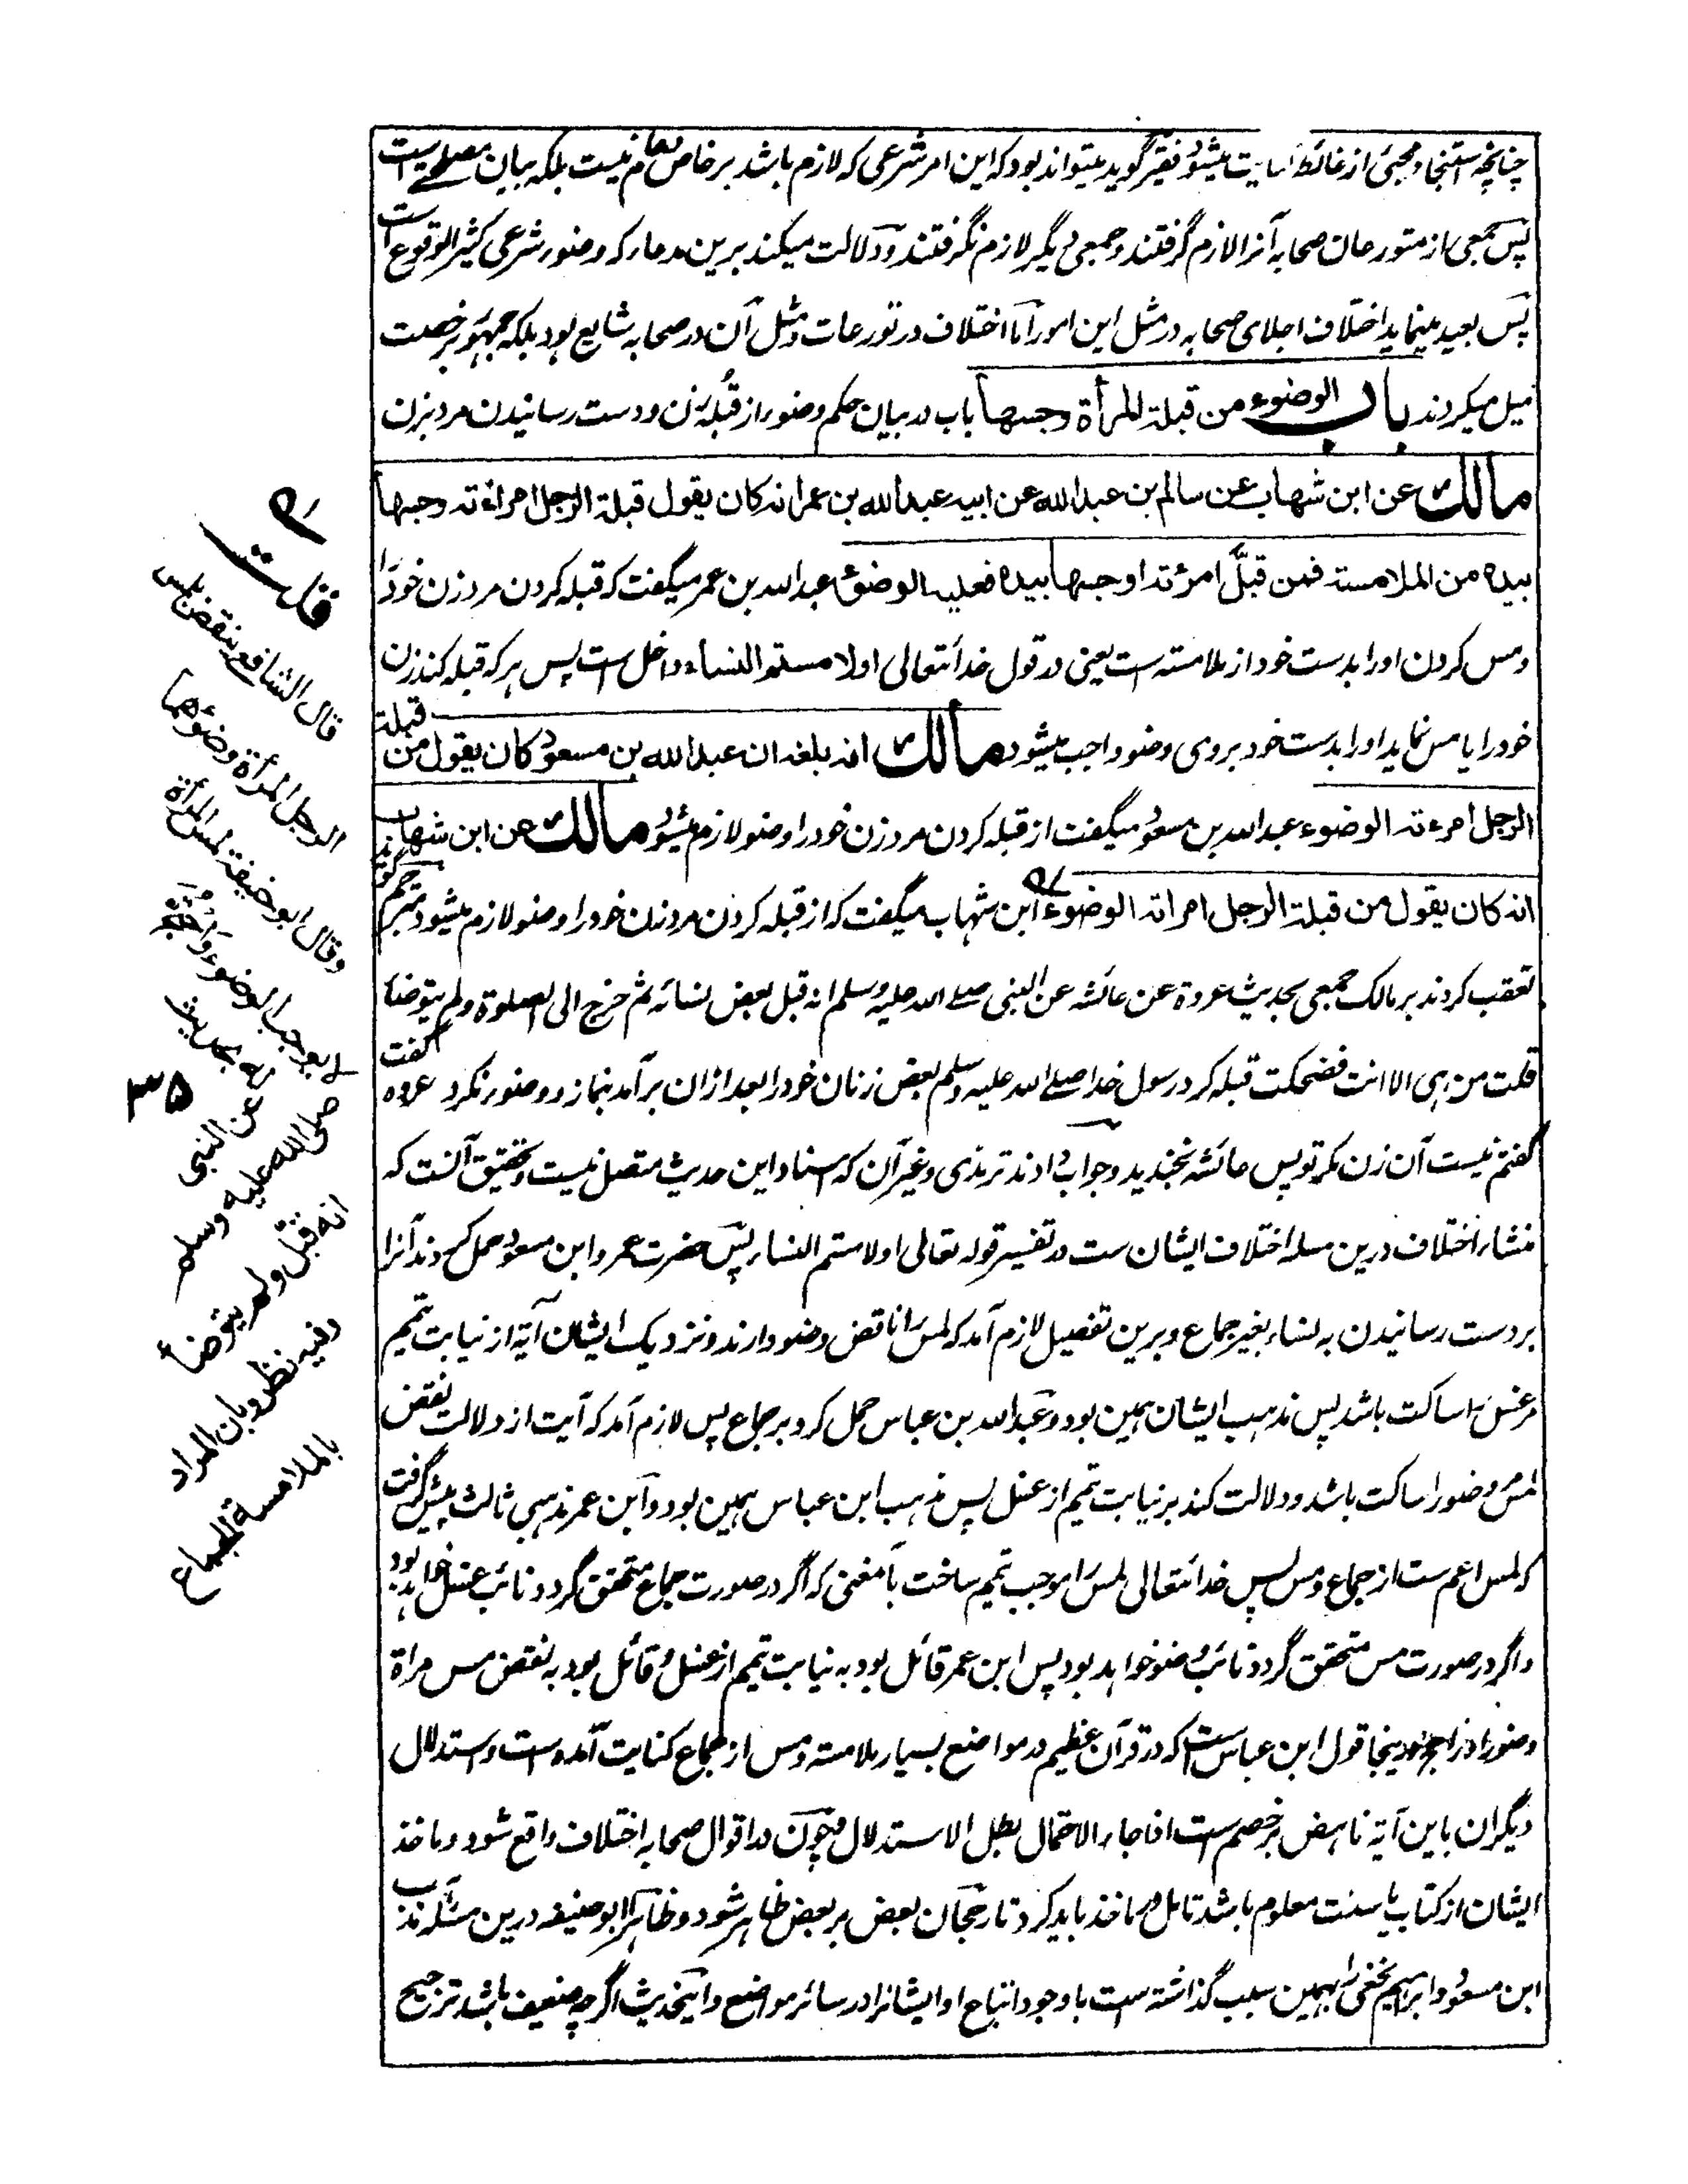 چنانچه استنجا و مجئ از غائط سایت میشود فقیر گوید میتواند بود که این امر شرعی که لازم باشد بر خاص و عام نیست بلکه بیان مصلحے است
پس جمعی از متورعان صحابه آنرا لازم گرفتند و جمعی دیگر لازم نگرفتند و دلالت میکند برین مدعا که وضوء شرعی کثیر الوقوع است
پس بعید مینماید اختلاف اجلای صحابه در مثل این امور اما اختلاف در تورعات و مثل آن در صحابه شایع بود بلکه جمهور برخصت
میل میکردند باب الوضوء من قبلة المرأة وجسها باب در بیان حکم وضوء از قبلهٔ زن و دست رسانیدن مرد بزن
مالك عن ابن شهاب عن سالم بن عبد الله عن ابیه عبد الله بن عمر انه کان یقول قبلة الرجل امراءته وجسها
بیده من الملامسة فمن قبّل امرئته او جسها بیده فعلیه الوضوء عبد الله بن عمر میگفت که قبله کردن مرد زن خود را
و مس کردن او را بدست خود از ملامسته است یعنی در قول خدا تعالی اولامستم النساء داخل است پس هر که قبله کند زن
خود را یا مس نماید او را بدست خود بروی وضو واجب میشود مالك انه بلغه ان عبد الله بن مسعود کان یقول من قبلة
الرجل امرءته الوضوء عبد الله بن مسعود میگفت از قبله کردن مرد زن خود را وضو لازم میشود مالك عن ابن شهاب
انه کان یقول من قبلة الرجل امراته الوضوء ابن شهاب میگفت که از قبله کردن مرد زن خود را وضو لازم میشود مترجم گوید
تعقب کردند بر مالک جمعی بحدیث عروة عن عائشه عن النبی صلے الله علیه وسلم انه قبل بعض نسائه ثم خرج الی الصلوة ولم یتوضأ
قلت من هی الا انت فضحکت قبله کرد رسول خدا صلے الله علیه وسلم بعض زنان خود را بعد ازان برآمد بنماز و وضو نکرد عروه گفت
گفتم نیست آن زن مگر تو پس عائشه بخندید و جواب دادند ترمذی و غیر آن که اسناد این حدیث متصل نیست و تحقیق آنست که
منشاء اختلاف درین مسله اختلاف ایشان ست در تفسیر قوله تعالی اولامستم النساء پس حضرت عمر و ابن مسعود حمل کردند آنرا
بر دست رسانیدن به نساء بغیر جماع و برین تفصیل لازم آمد که لمس را ناقض وضو دارند و نزدیک ایشان آیة از نیابت تیمم
مر غسل را ساکت باشد پس مذهب ایشان همین بود و عبد الله بن عباس حمل کرد بر جماع پس لازم آمد که آیت از دلالت نقض
لمس وضو را ساکت باشد و دلالت کند بر نیابت تیمم از غسل پس مذهب ابن عباس همین بود و ابن عمر مذهبی ثالث پیش گرفت
که لمس اعم ست از جماع و مس پس خدا تعالی لمس را موجب تیمم ساخت بآمعنی که اگر در صورت جماع متحقق گردد نائب غسل خواهد بود
و اگر در صورت مس متحقق گردد نائب وضو خواهد بود پس ابن عمر قائل بود به نیابت تیمم از غسل و قائل بود به نقض مس مراة
وضو را و راجح درینجا قول ابن عباس ست که در قرآن عظیم در مواضع بسیار ملامسته و مس از جماع کنایت آمده ست و استدلال
دیگران باین آیة ناهض بر خصم ست اذا جاء الاحتمال بطل الاستدلال و چون در اقوال صحابه اختلاف واقع شود و ماخذ
ایشان از کتاب یا سنت معلوم باشد تامل در ماخذ باید کرد تا رجحان بعض بر بعض ظاهر شود و ظاهراً ابو حنیفه درین مسئله مذهب
ابن مسعود و ابراهیم نخعی را بهمین سبب گذاشته ست با وجود اتباع او ایشانرا در سائر مواضع و اینحدیث اگر چه ضعیف باشد ترجیح
قلت
قال الشافعی ینقض لمس
الرجل المرأة وضوءهما
وقال ابو حنیفة لمس المرأة
لا یوجب الوضوء
له بحدیث
عن النبی
صلی الله علیه وسلم
انه قبّل ولم یتوضأ
وفیه نظر وبان المراد
بالملامسة الجماع
۳۵